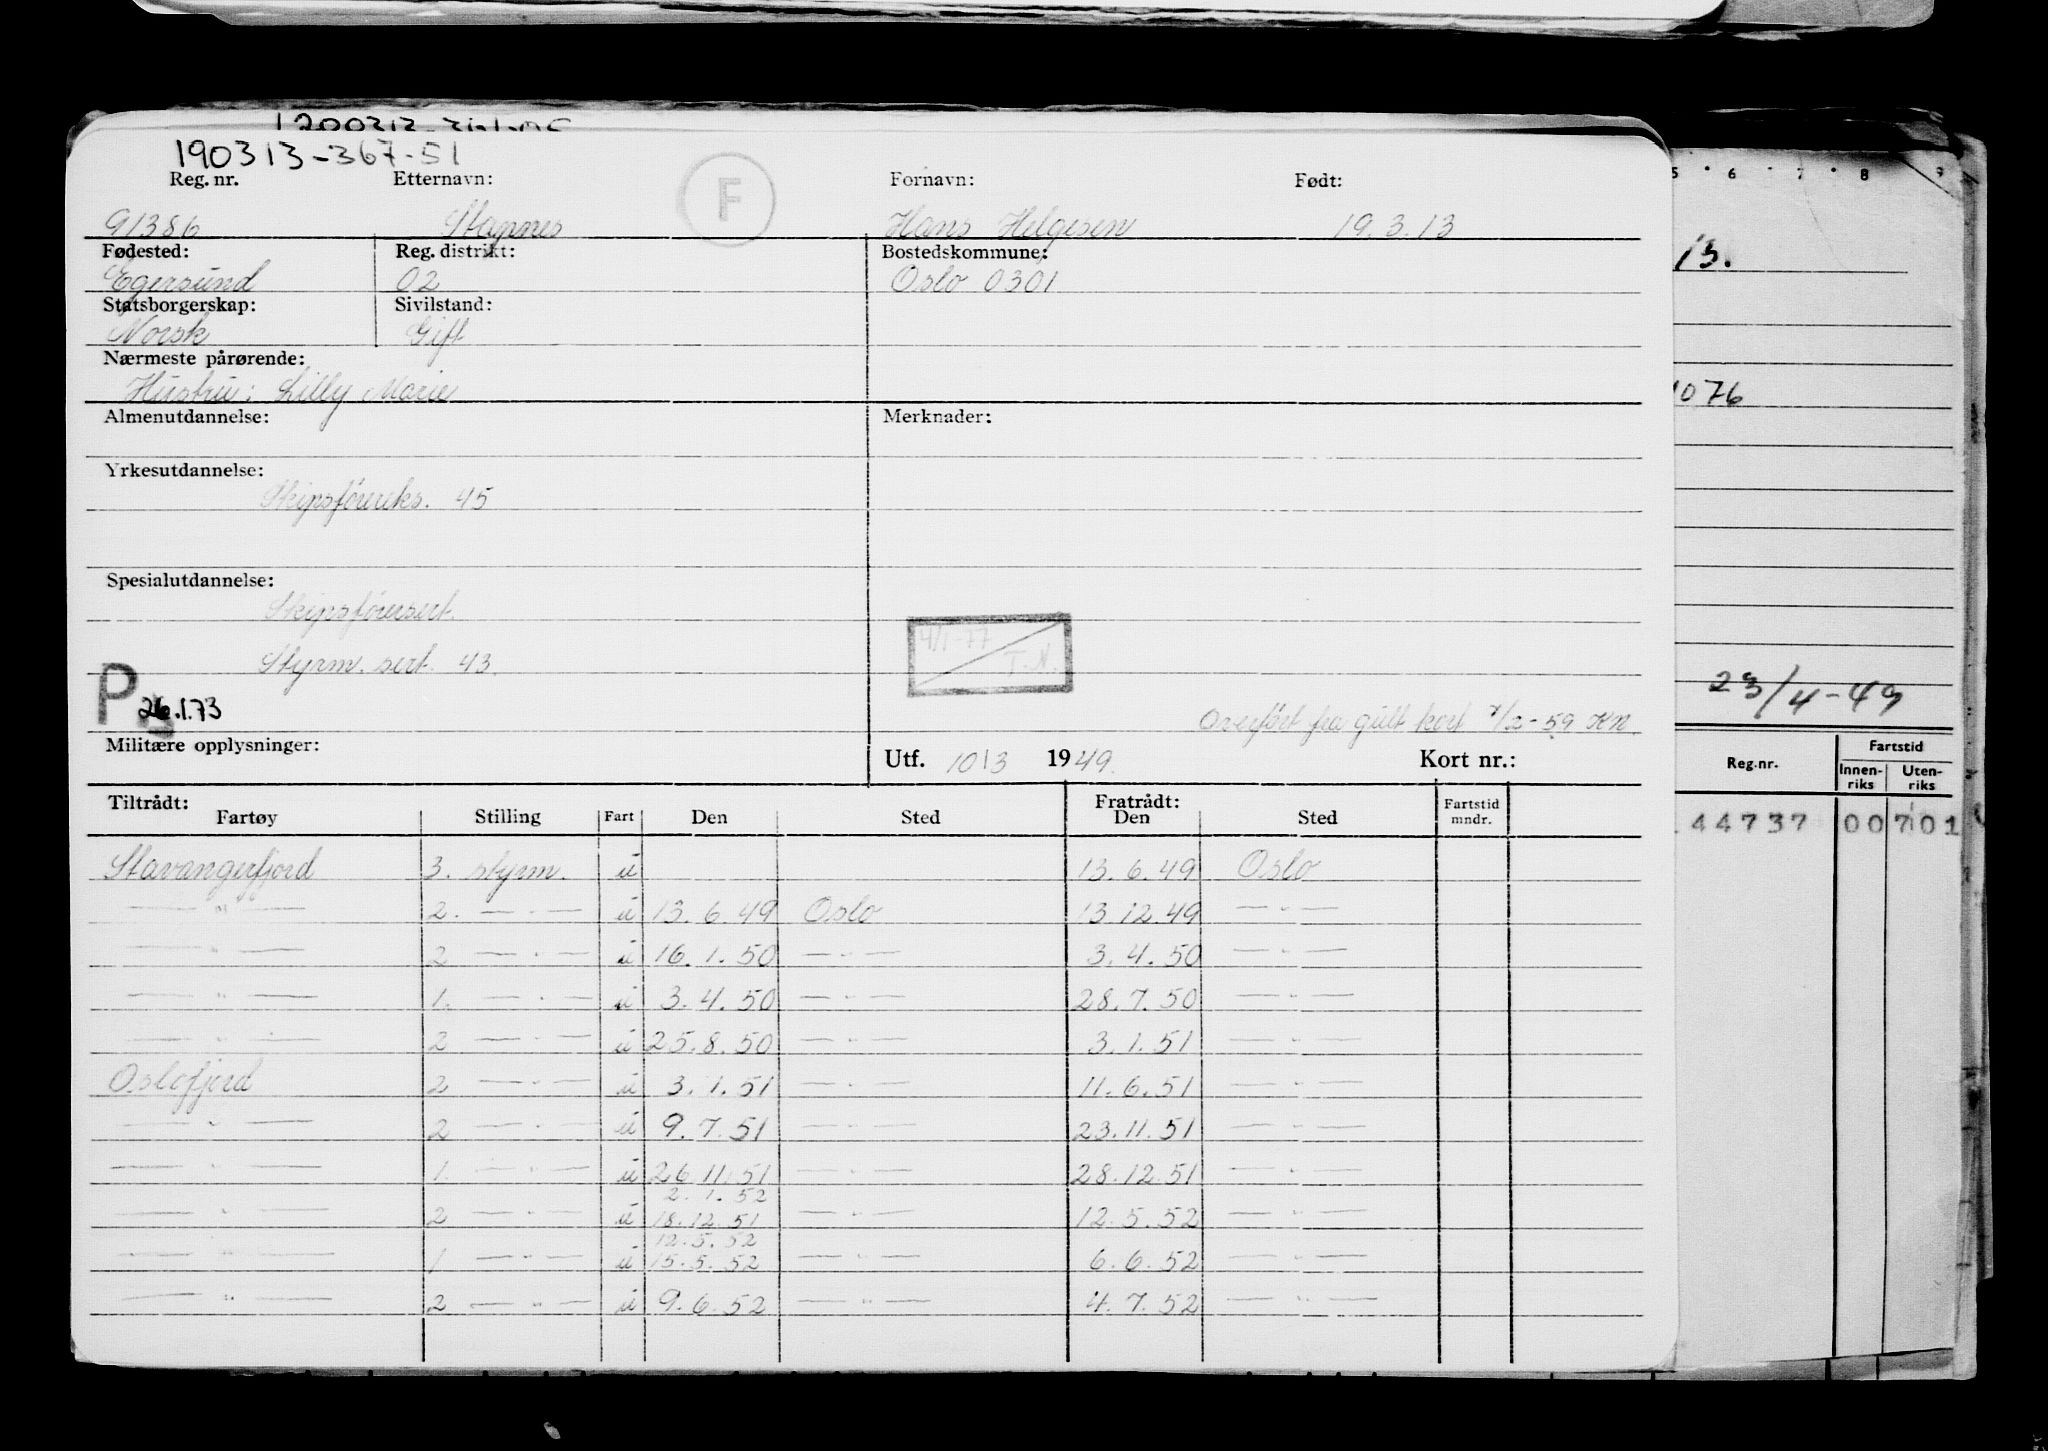 190313-367-51
Reg. nr. Etternavn: F Fornavn: Født:
91386 Stapnes Hans Helgesen 19.3.13
Fødested: Reg. distrikt: Bostedskommune:
Egersund 02 Oslo 0301
Statsborgerskap: Sivilstand:
Norsk Gift
Nærmeste pårørende:
Hustru: Lilly Marie
Almenutdannelse: Merknader:
Yrkesutdannelse:
Skipsførereks. 45
Spesialutdannelse:
Skipsførersert.
Styrm. sert. 43.
4/1-77
T.N.
P
26.1.73
Overført fra gult kort 7/2-59 KN.
Militære opplysninger: Utf. 10/3 1949. Kort nr.:
Tiltrådt: Fratrådt: Fartstid
Fartøy Stilling Fart Den Sted Den Sted mndr.
Stavangerfjord 3. styrm. u 13.6.49 Oslo
— " — 2. — " — u 13.6.49 Oslo 13.12.49 — " —
— " — 2 — " — u 16.1.50 — " — 3.4.50 — " —
— " — 1. — " — u 3.4.50 — " — 28.7.50 — " —
— " — 2 — " — u 25.8.50 — " — 3.1.51 — " —
Oslofjord 2 — " — u 3.1.51 — " — 11.6.51 — " —
— " — 2 — " — u 9.7.51 — " — 23.11.51 — " —
— " — 1. — " — u 26.11.51 — " — 28.12.51 — " —
2.1.52
— " — 2 — " — u 18.12.51 — " — 12.5.52 — " —
12.5.52
— " — 1 — " — u 15.5.52 — " — 6.6.52 — " —
— " — 2 — " — u 9.6.52 — " — 4.7.52 — " —
5 6 7 8 9
13.
1076
23/4-49
Fartstid
Reg.nr. Innen-riks Uten-riks
44737 00 701